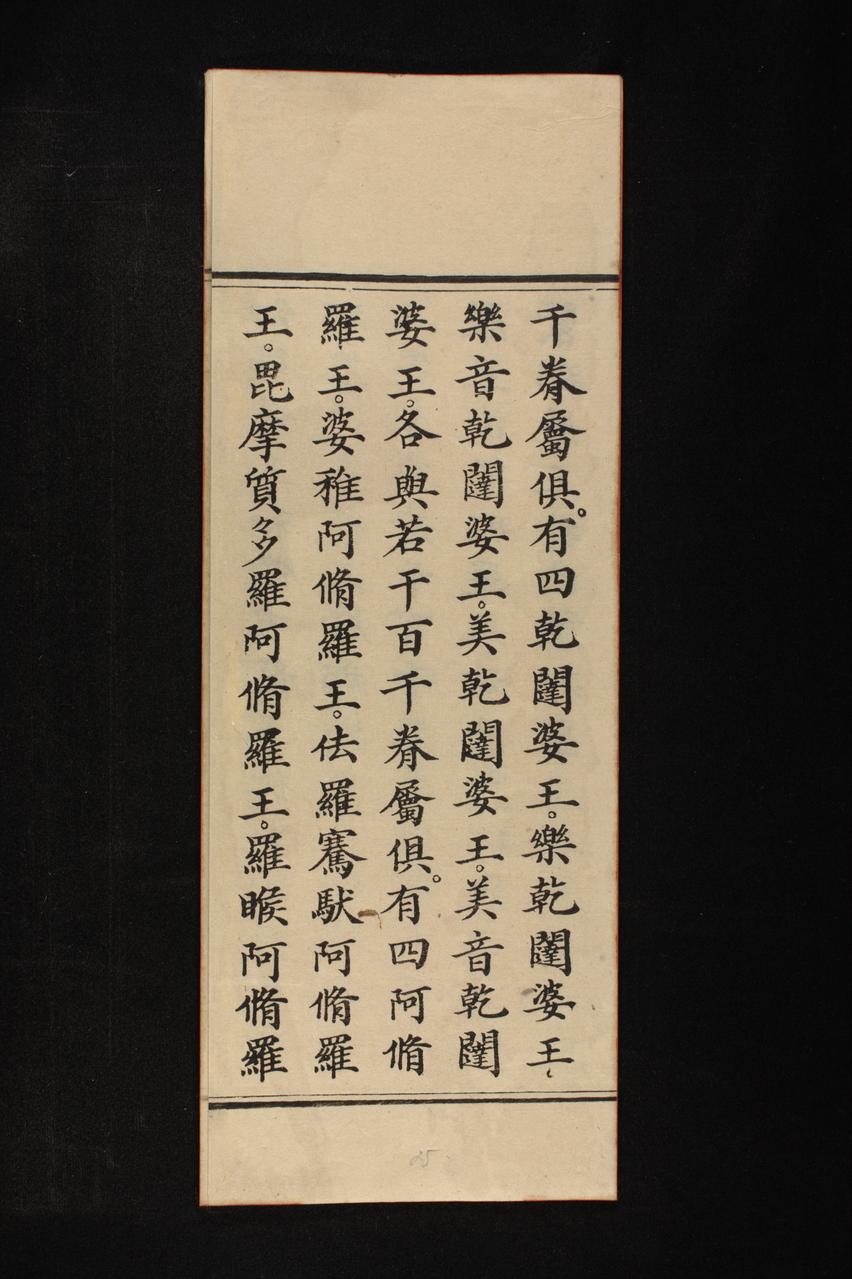 千眷屬俱。有四乾闥婆王。樂乾闥婆王、
樂音乾闥婆王。美乾闥婆王。美音乾闥
婆王。各與若干百千眷屬俱。有四阿脩
羅王。婆稚阿脩羅王。佉羅騫馱阿脩羅
王。毘摩質多羅阿脩羅王。羅睺阿脩羅
25